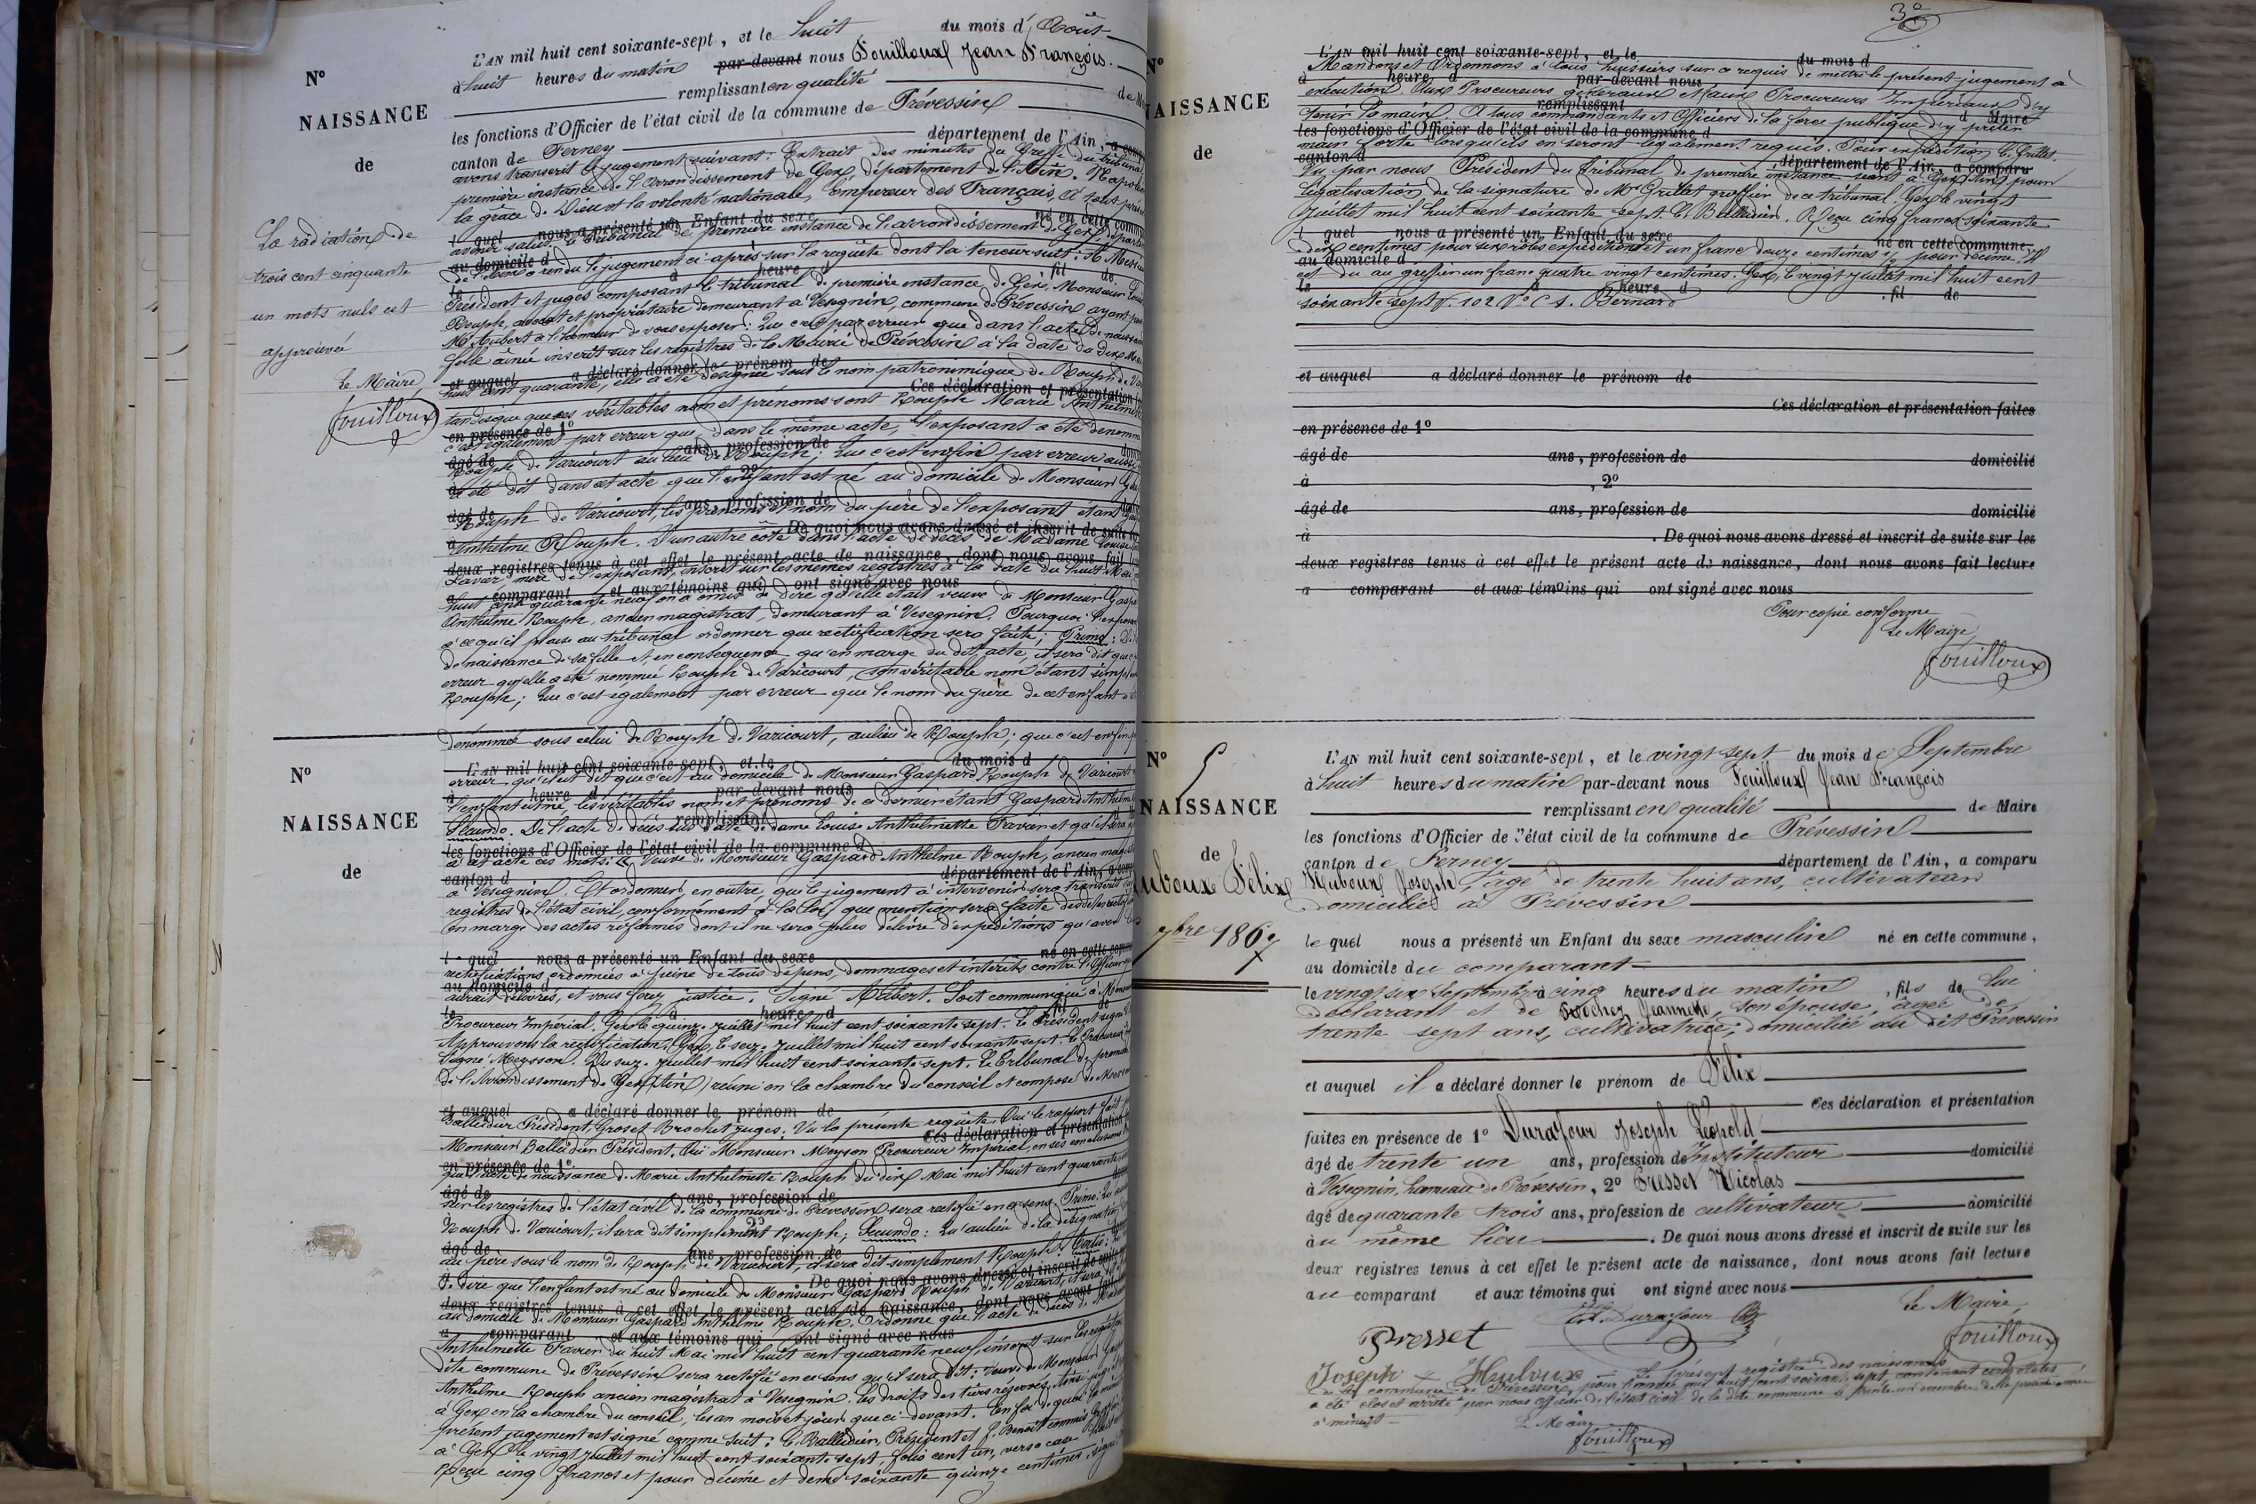 N°
NAISSANCE
de
La radiation de
trois cent cinquante
un mots nuls est
approuvée
Le Maire
Fouilloux
L'AN mil huit cent soixante-sept, et le huit du mois d'Août
à huit heures du matin par-devant nous Fouilloux Jean François.
remplissant en qualité de
les fonctions d'Officier de l'état civil de la commune de Prévessin
canton de Ferney département de l'Ain,
avons transcrit le jugement suivant: Extrait des minutes du Greffe du tribunal
première instance de l'arrondissement de Gex, département de l'Ain. Napoléon
la grâce de Dieu et la volonté nationale, Empereur des Français, à tous présents
t quel nous a présenté un Enfant du sexe né en cette
avenir salut. Le Tribunal de première instance de l'arrondissement de Gex,
au domicile d
de l'Ain a rendu le jugement ci-après sur la requête dont la teneur suit: A Messieurs
le à heure d fil de
Président et juges composant le tribunal de première instance de Gex, Monsieur
Rouph, avocat et propriétaire demeurant à Vésegnin, commune de Prévessin ayant pour
Mr Aubert a l'honneur de vous exposer: Que c'est par erreur que dans l'acte de naissance
fille aînée inscrit sur les registres de la Mairie de Prévessin à la date du dix Mai
et auquel a déclaré donner le prénom de
huit cent quarante, elle a été désignée sous le nom patronimique de Rouph de
Ces déclaration et présentation
tandis que ses véritables nom et prénoms sont Rouph Marie Anthelmette
en présence de 1°
c'est également par erreur que dans le même acte, l'exposant a été dénommé
âgé de ans, profession de
Rouph de Varicourt au lieu de Rouph; que c'est enfin par erreur aussi
à 2°
a été dit dans cet acte que l'enfant est né au domicile de Monsieur
âgé de ans, profession de
Rouph de Varicourt, les prénoms et nom du père de l'exposant étant
à De quoi nous avons dressé et inscrit de suite
Anthelme Rouph. D'un autre côté dans l'acte de décès de Madame Louise
deux registres tenus à cet effet le présent acte de naissance, dont nous avons fait
Favier, mère de l'exposant, inscrit sur les mêmes registres à la date du huit Mai
a comparant et aux témoins qui ont signé avec nous
huit cent quarante neuf on a omis de dire qu'elle était veuve de Monsieur
Anthelme Rouph, ancien magistrat, demeurant à Vesegnin. Pourquoi l'exposant
à ce qu'il plaise au tribunal ordonner que rectification sera faite; Primo:
de naissance de sa fille et en conséquence qu'en marge du dit acte, il sera dit que
erreur qu'elle a été nommée Rouph de Varicourt, son véritable nom étant
Rouph; Que c'est également par erreur que le nom du père de cet enfant
dénommé sous celui de Rouph de Varicourt, au lieu de Rouph; que c'est enfin
N°
NAISSANCE
de
L'AN mil huit cent soixante-sept, et le du mois d
erreur qu'il est dit que c'est au domicile de Monsieur Gaspard Rouph de Varicourt
à heure d par-devant nous
l'enfant est né les véritables nom et prénoms de ce dernier étant Gaspard Anthelme
remplissant
Secundo. De l'acte de décès de dame Louise Anthelmette Favier et qu'il sera
les fonctions d'Officier de l'état civil de la commune d
cet acte ces mots: Veuve de Monsieur Gaspard Anthelme Rouph, ancien
canton d département de l'Ain, a
à Vésegnin. Et ordonner en outre, que le jugement à intervenir sera transcrit
registres de l'état civil, conformément à la loi, que mention sera faite
en marge des actes réformés dont il ne sera plus délivré d'expéditions qu'avec
t quel nous a présenté un Enfant du sexe né en cette
rectifications ordonnées à peine de tous dépens, dommages et intérêts contre l'officier
au domicile d
aurait délivrés, et vous ferez justice. Signé Aubert. Soit communiqué à Monsieur
le à heure d fil de
Procureur Impérial. Gex le quinze juillet mil huit cent soixante sept. Le Président signé
Approuvons la rectification. Gex, le seize juillet mil huit cent soixante sept. Le Procureur
signé Meysson. Du seize juillet mil huit cent soixante sept. Le Tribunal de première
de l'Arrondissement de Gex (Ain) réuni en la chambre du conseil et composé de Messieurs
et auquel a déclaré donner le prénom de
Balleidier Président, Grosset Brochet juges. Vu la présente requête, Oui le rapport fait
Ces déclaration et présentation
Monsieur Balleidier Président, Oui Monsieur Meysson Procureur Impérial, en ses conclusions
en présence de 1°
que l'acte de naissance de Marie Anthelmette Rouph du dix Mai mil huit cent quarante
âgé de ans, profession de
sur les registres de l'état civil de la commune de Prévessin sera rectifié en ce sens, Primo:
à 2°
Rouph de Varicourt, il sera dit simplement Rouph; Secundo: Qu'au lieu de la désignation
âgé de ans, profession de
du père sous le nom de Rouph de Varicourt, il sera dit simplement Rouph; Tertio:
De quoi nous avons dressé et inscrit de suite
de dire que l'enfant est né au domicile de Monsieur Gaspard Rouph de Varicourt, il sera
deux registres tenus à cet effet le présent acte de naissance, dont nous avons fait
au domicile de Monsieur Gaspard Anthelme Rouph. Ordonne que l'acte de décès de
a comparant et aux témoins qui ont signé avec nous
Anthelmette Favier du huit Mai mil huit cent quarante neuf inscrit sur les registres
dite commune de Prévessin sera rectifié en ce sens qu'il sera dit: Veuve de Monsieur
Anthelme Rouph ancien magistrat à Vésegnin. Les droits des tiers réservés. Ainsi
à Gex en la chambre du conseil, les an mois et jour que ci-devant. En foi de quoi
présent jugement est signé comme suit: C. Balleidier, Président et J. Benoit commis
à Gex le vingt juillet mil huit cent soixante sept, folio cent un, verso case
Reçu cinq francs et pour décime et demi soixante quinze centimes, signé
3°
N°
NAISSANCE
de
L'AN mil huit cent soixante-sept, et le du mois d
Mandons et Ordonnons à tous huissiers sur ce requis de mettre le présent jugement à
à heure d par-devant nous
exécution. Aux Procureurs généraux et à nos Procureurs Impériaux d'y
remplissant d Maire
tenir la main. A tous commandants et Officiers de la force publique d'y prêter
les fonctions d'Officier de l'état civil de la commune d
main forte lorsqu'ils en seront légalement requis. Pour expédition C. Grillet.
canton d département de l'Ain, a comparu
Vu par nous Président du Tribunal de première instance séant à Gex (Ain) pour
légalisation de la signature de Mr Grillet greffier de ce tribunal. Gex le vingt
juillet mil huit cent soixante sept C. Balleidier. Reçu cinq francs soixante
t quel nous a présenté un Enfant du sexe né en cette commune,
dix centimes pour six rôles expédition et un franc douze centimes ½ pour décime. Il
au domicile d
est dû au greffier un franc quatre vingt centimes. Gex, le vingt juillet mil huit cent
le à heure d , fil de
soixante sept f. 102 V° C 1. Bernard
et auquel a déclaré donner le prénom de
Ces déclaration et présentation faites
en présence de 1°
âgé de ans, profession de domicilié
à , 2°
âgé de ans, profession de domicilié
à . De quoi nous avons dressé et inscrit de suite sur les
deux registres tenus à cet effet le présent acte de naissance, dont nous avons fait lecture
a comparant et aux témoins qui ont signé avec nous
Pour copie conforme
Le Maire,
Fouilloux
N° 5
NAISSANCE
de
uboux Félix
7bre 1867
L'AN mil huit cent soixante-sept, et le vingt sept du mois de Septembre
à huit heures du matin par-devant nous Fouilloux Jean François
remplissant en qualité de Maire
les fonctions d'Officier de l'état civil de la commune de Prévessin
canton de Ferney département de l'Ain, a comparu
Huboux Joseph, âgé de trente huit ans, cultivateur
domicilié à Prévessin
le quel nous a présenté un Enfant du sexe masculin né en cette commune,
au domicile du comparant
le vingt six Septembre à cinq heures du matin, fils de lui
déclarant et de Rochez Jeannette, son épouse, âgée de
trente sept ans, cultivatrice, domiciliée au dit Prévessin
et auquel il a déclaré donner le prénom de Félix
Ces déclaration et présentation
faites en présence de 1° Durafour Joseph Léopold
âgé de trente un ans, profession de Instituteur domicilié
à Vésegnin, hameau de Prévessin, 2° Gresset Nicolas
âgé de quarante trois ans, profession de cultivateur domicilié
au même lieu. De quoi nous avons dressé et inscrit de suite sur les
deux registres tenus à cet effet le présent acte de naissance, dont nous avons fait lecture
au comparant et aux témoins qui ont signé avec nous
Durafour Le Maire,
Gresset Fouilloux
Joseph Huboux
Le présent registre des naissances
de la commune de Prévessin, pour l'année mil huit cent soixante sept, contenant
a été clos et arrêté par nous officier de l'état civil de la dite commune le trente un décembre de la présente année
à minuit
Le Maire
Fouilloux